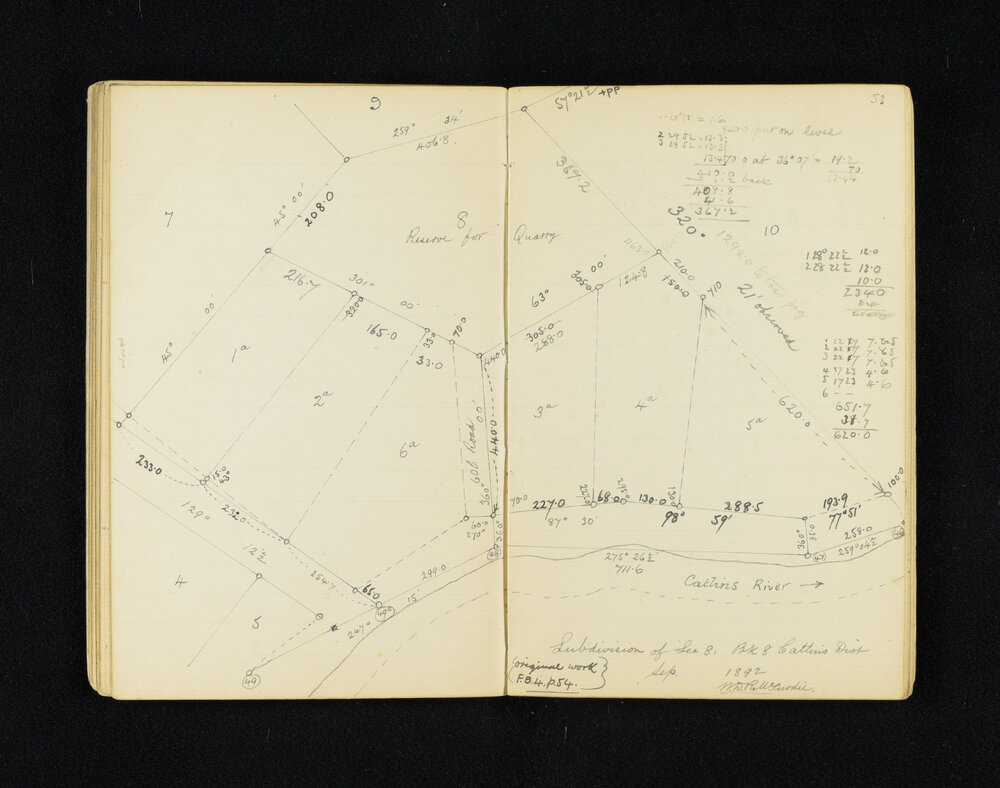 9
259° 34'
406.8.
45° 00'
208.0
7
8
Reserve for Quarry
216.7
301° 00'
320.0
165.0
33.0
33.0
70.0
440.0
45° 00'
1a
2a
6a
60l. Road
360° 00'
440.0
233.0
15.0
43°
129°
12½'
232.0
254.7
65.0
60.
270°
360°
299.0
247° 15'
4
5
49
53
57° 21½' +PP
367.2
1-10°28' = 1.6
put on level
13.4/70.0 at 36°07' = 19.2
410.0
1.2 back
408.8
41.6
367.2
320°
1298.0 to
21' observed
10
128° 22½' 12.0
228 22½' 12.0
10.0
234.0
1 22 17 7.65
2 22 17 7.65
3 22 17 7.65
4 17 23 4.6
5 17 23 4.6
6 - -
651.7
38.7
620.0
63° 00'
305.0
124.8
210.0
150.0
710
305.0
288.0
3a
4a
5a
620.0
100.0
70.0
227.0
68.0
130.0
288.5
193.9
87° 30'
98° 59'
77° 51'
360°
258.0
259° 04½'
275° 26½'
711.6
47
Catlins River →
Subdivision of Sec 8. Blk 8 Catlins Dist
Sep. 1892
original work
F.B.4.p.54.